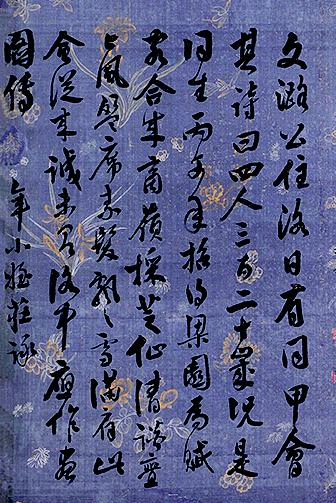 文潞公住洛日有同甲會
其詩曰四人三百二十歲況是
同生丙午年招得梁園為賦
客合成商嶺採芝仙清談亹
々風盈席素髮飄々雪滿肩此
會從來誠未有洛中應作畫
圖傳 年小姪莊